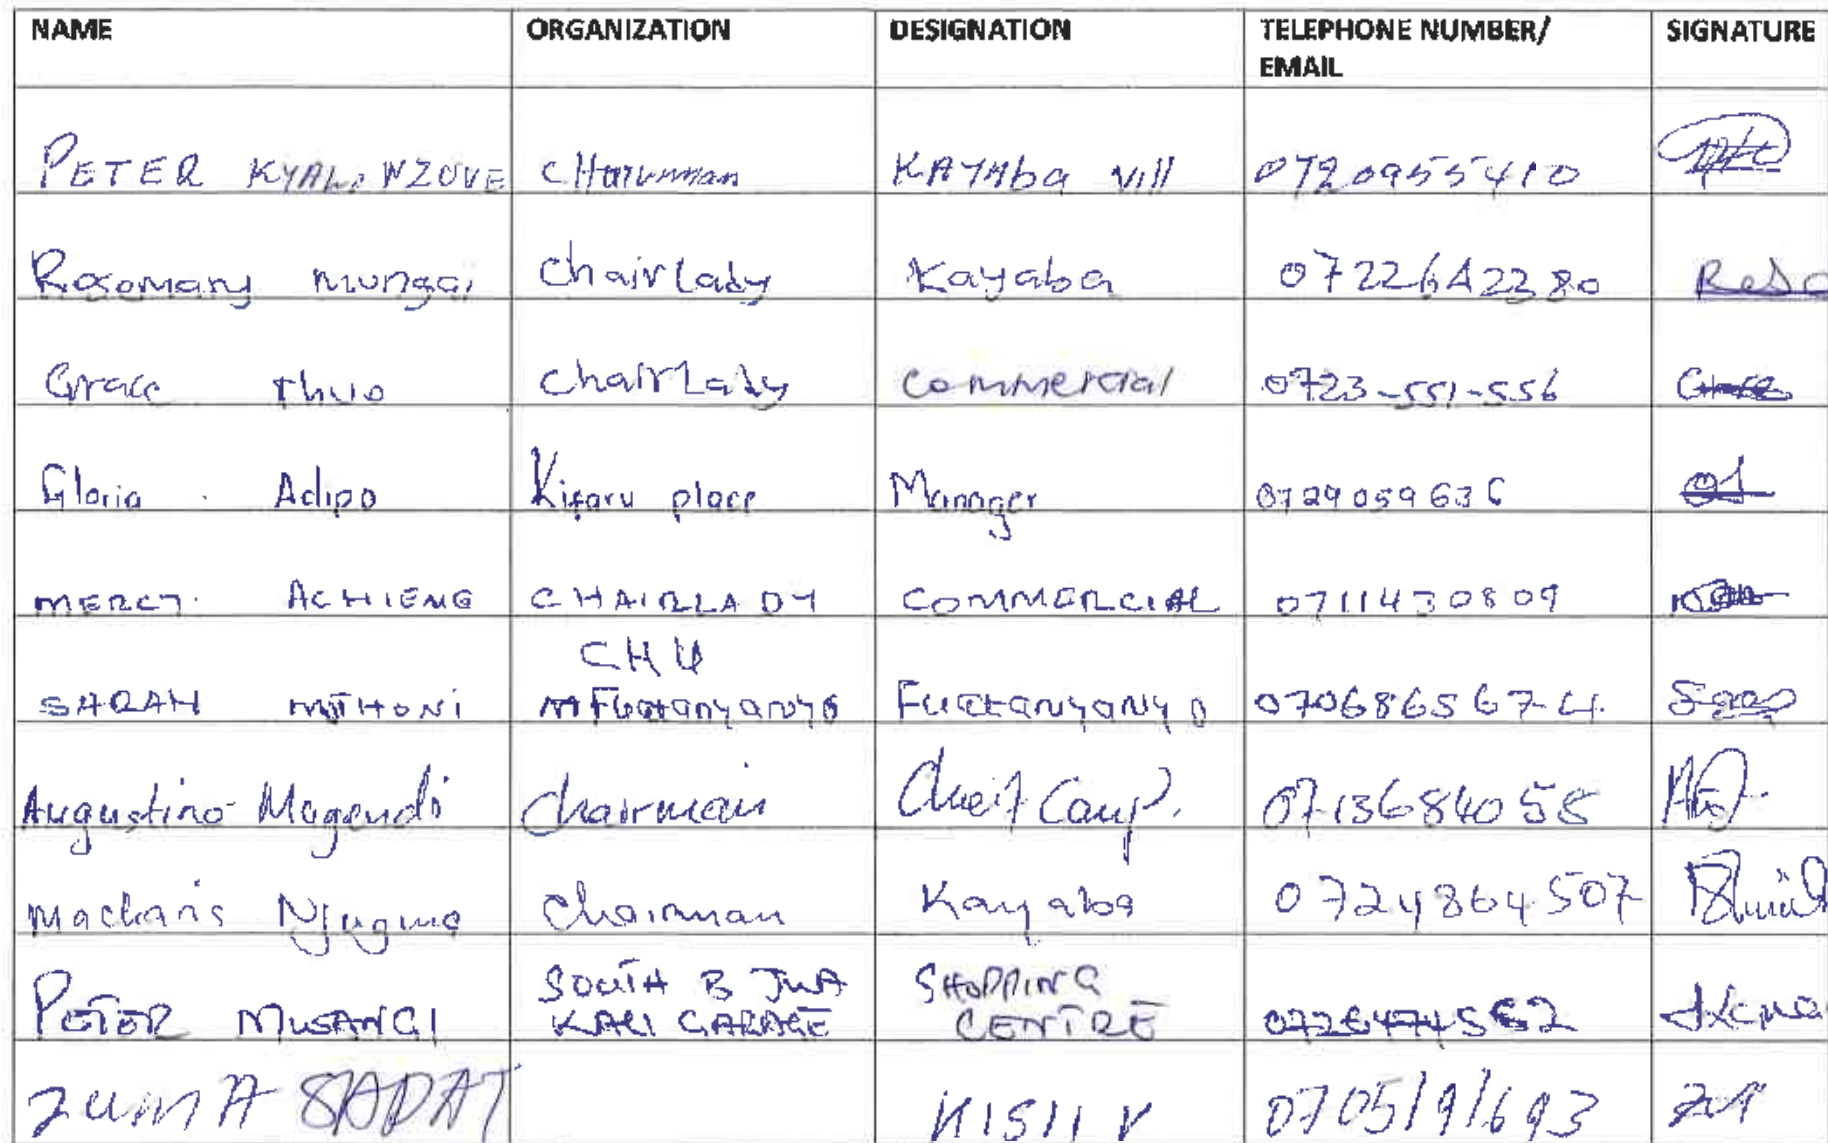 NAME ORGANIZATION DESIGNATION TELEPHONE NUMBER/ EMAIL SIGNATURE
PETER KYALO NZUVE CHairman KAYAba Vill 0720955410
Rosemary mungai Chairlady Kayaba 0722642280
Grace Thuo Chairlady Commercial 0723-551-556 Grace
Gloria Adipo Kifaru place Manager 0729059636
MERCY. ACHIENG CHAIRLADY COMMERCIAL 0711430809
SARAH MUTHONI CHU Fuatanyanyo 0706865674
Augustino Magendi Chairman Cheif Camp. 0713684058
Macharis Njuguna Chairman Kayaba 0724864507
PETER MUSANGI SOUTH B JUA KALI GARAGE SHOPPING CENTRE
ZUMA SADAT KISII V 0705191693